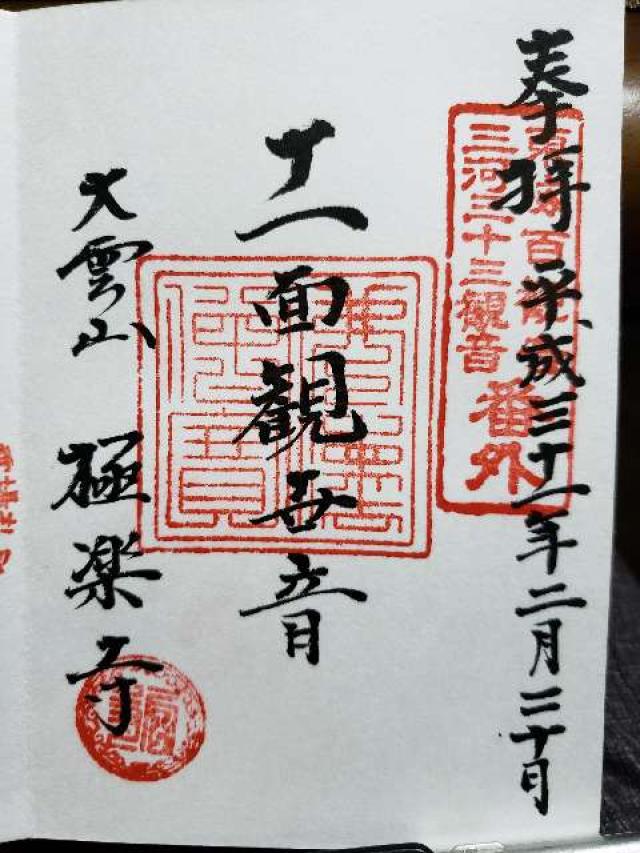 奉拝 平成三十一年二月二十日
東海百観音
三河三十三観音
番外
十一面観世音
大雲山 極楽寺